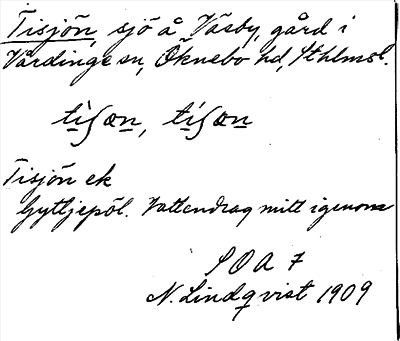 Tisjön, sjö å Väsby, gård i
Vårdinge sn, Öknebo hd, Sthlmsl.
ti̱ʃœṉ, ti̱ʃœṉ
Tisjön ek
Gyttjepöl. Vattendrag mitt igenom
SOA 7
N. Lindqvist 1909